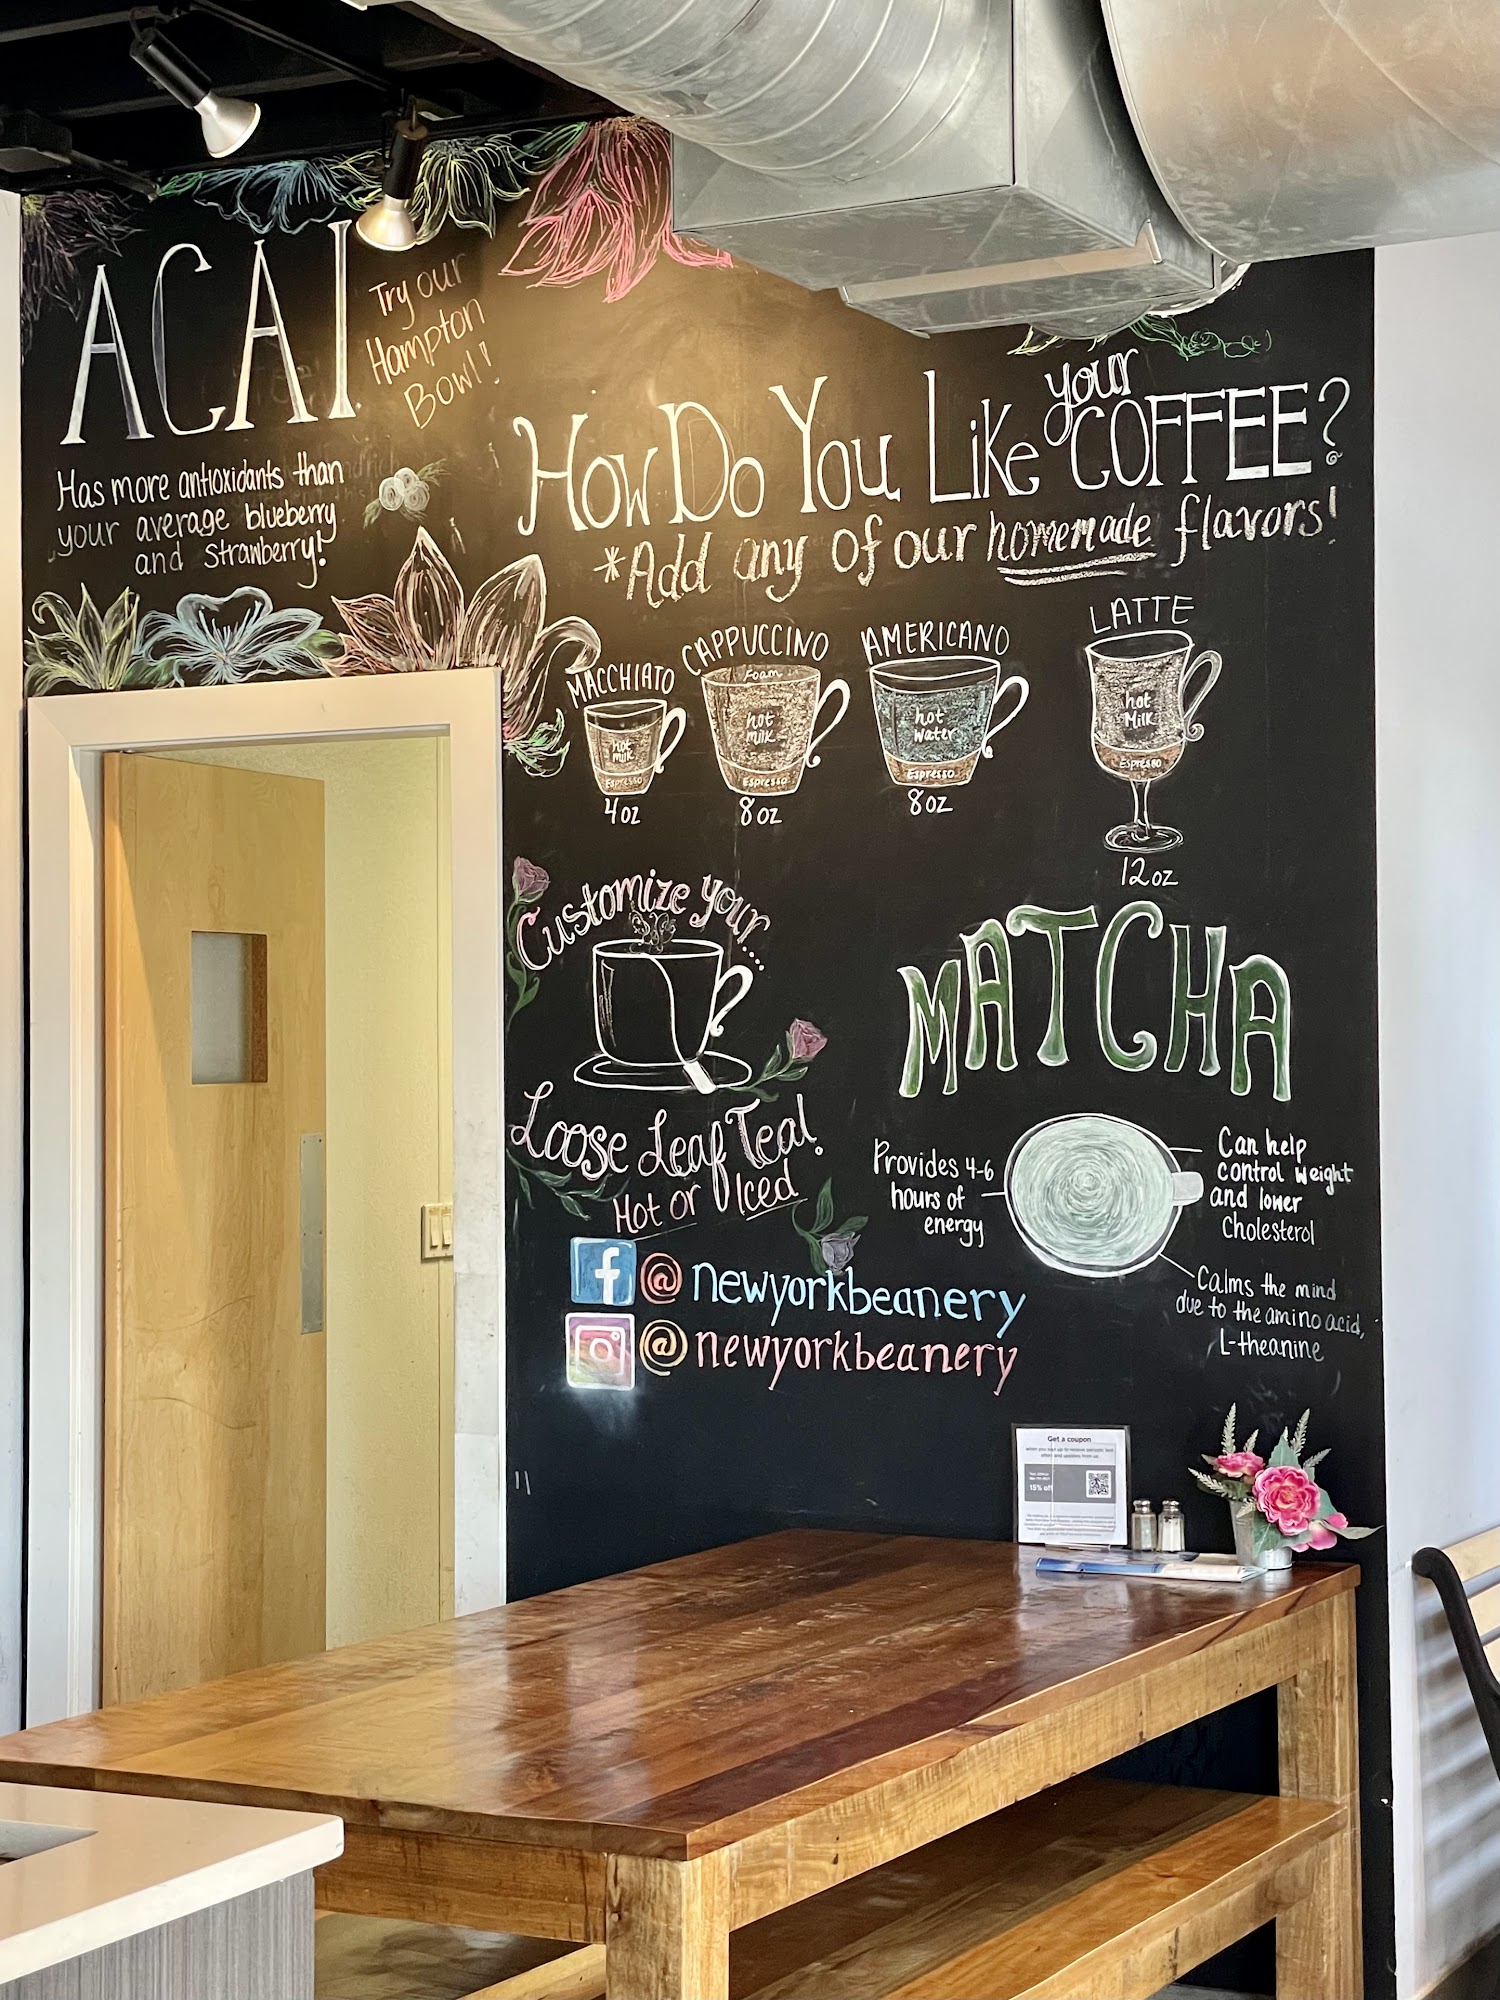 ACAI
Try our
Hampton
Bowl!
Has more antioxidants than
your average blueberry
and strawberry!
How Do You Like your COFFEE?
*Add any of our homemade flavors!
MACCHIATO
hot
milk
Espresso
4oz
CAPPUCCINO
Foam
hot
milk
Espresso
8oz
AMERICANO
hot
water
Espresso
8oz
LATTE
hot
Milk
Espresso
12oz
Customize your....
Loose Leaf Tea!
Hot or Iced
MATCHA
Provides 4-6
hours of
energy
Can help
control weight
and lower
Cholesterol
Calms the mind
due to the amino acid,
L-theanine
f @newyorkbeanery
@newyorkbeanery
Get a coupon
when you sign up to receive periodic text
offers and updates from us.
15% off